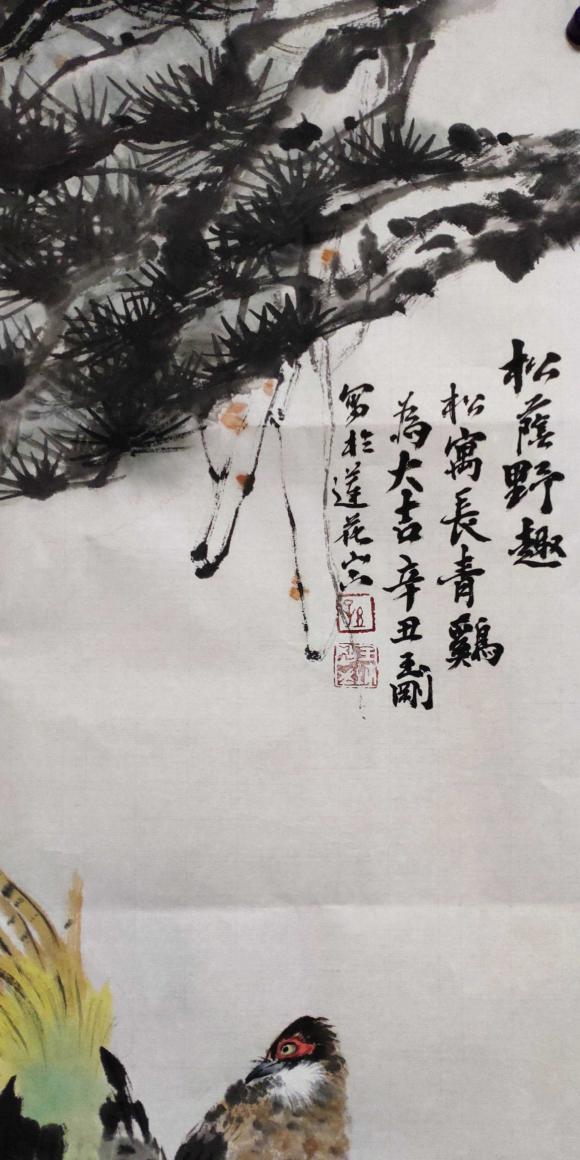 松蔭野趣
松寓長青鷄
為大吉辛丑玉剛
写於蓮花山